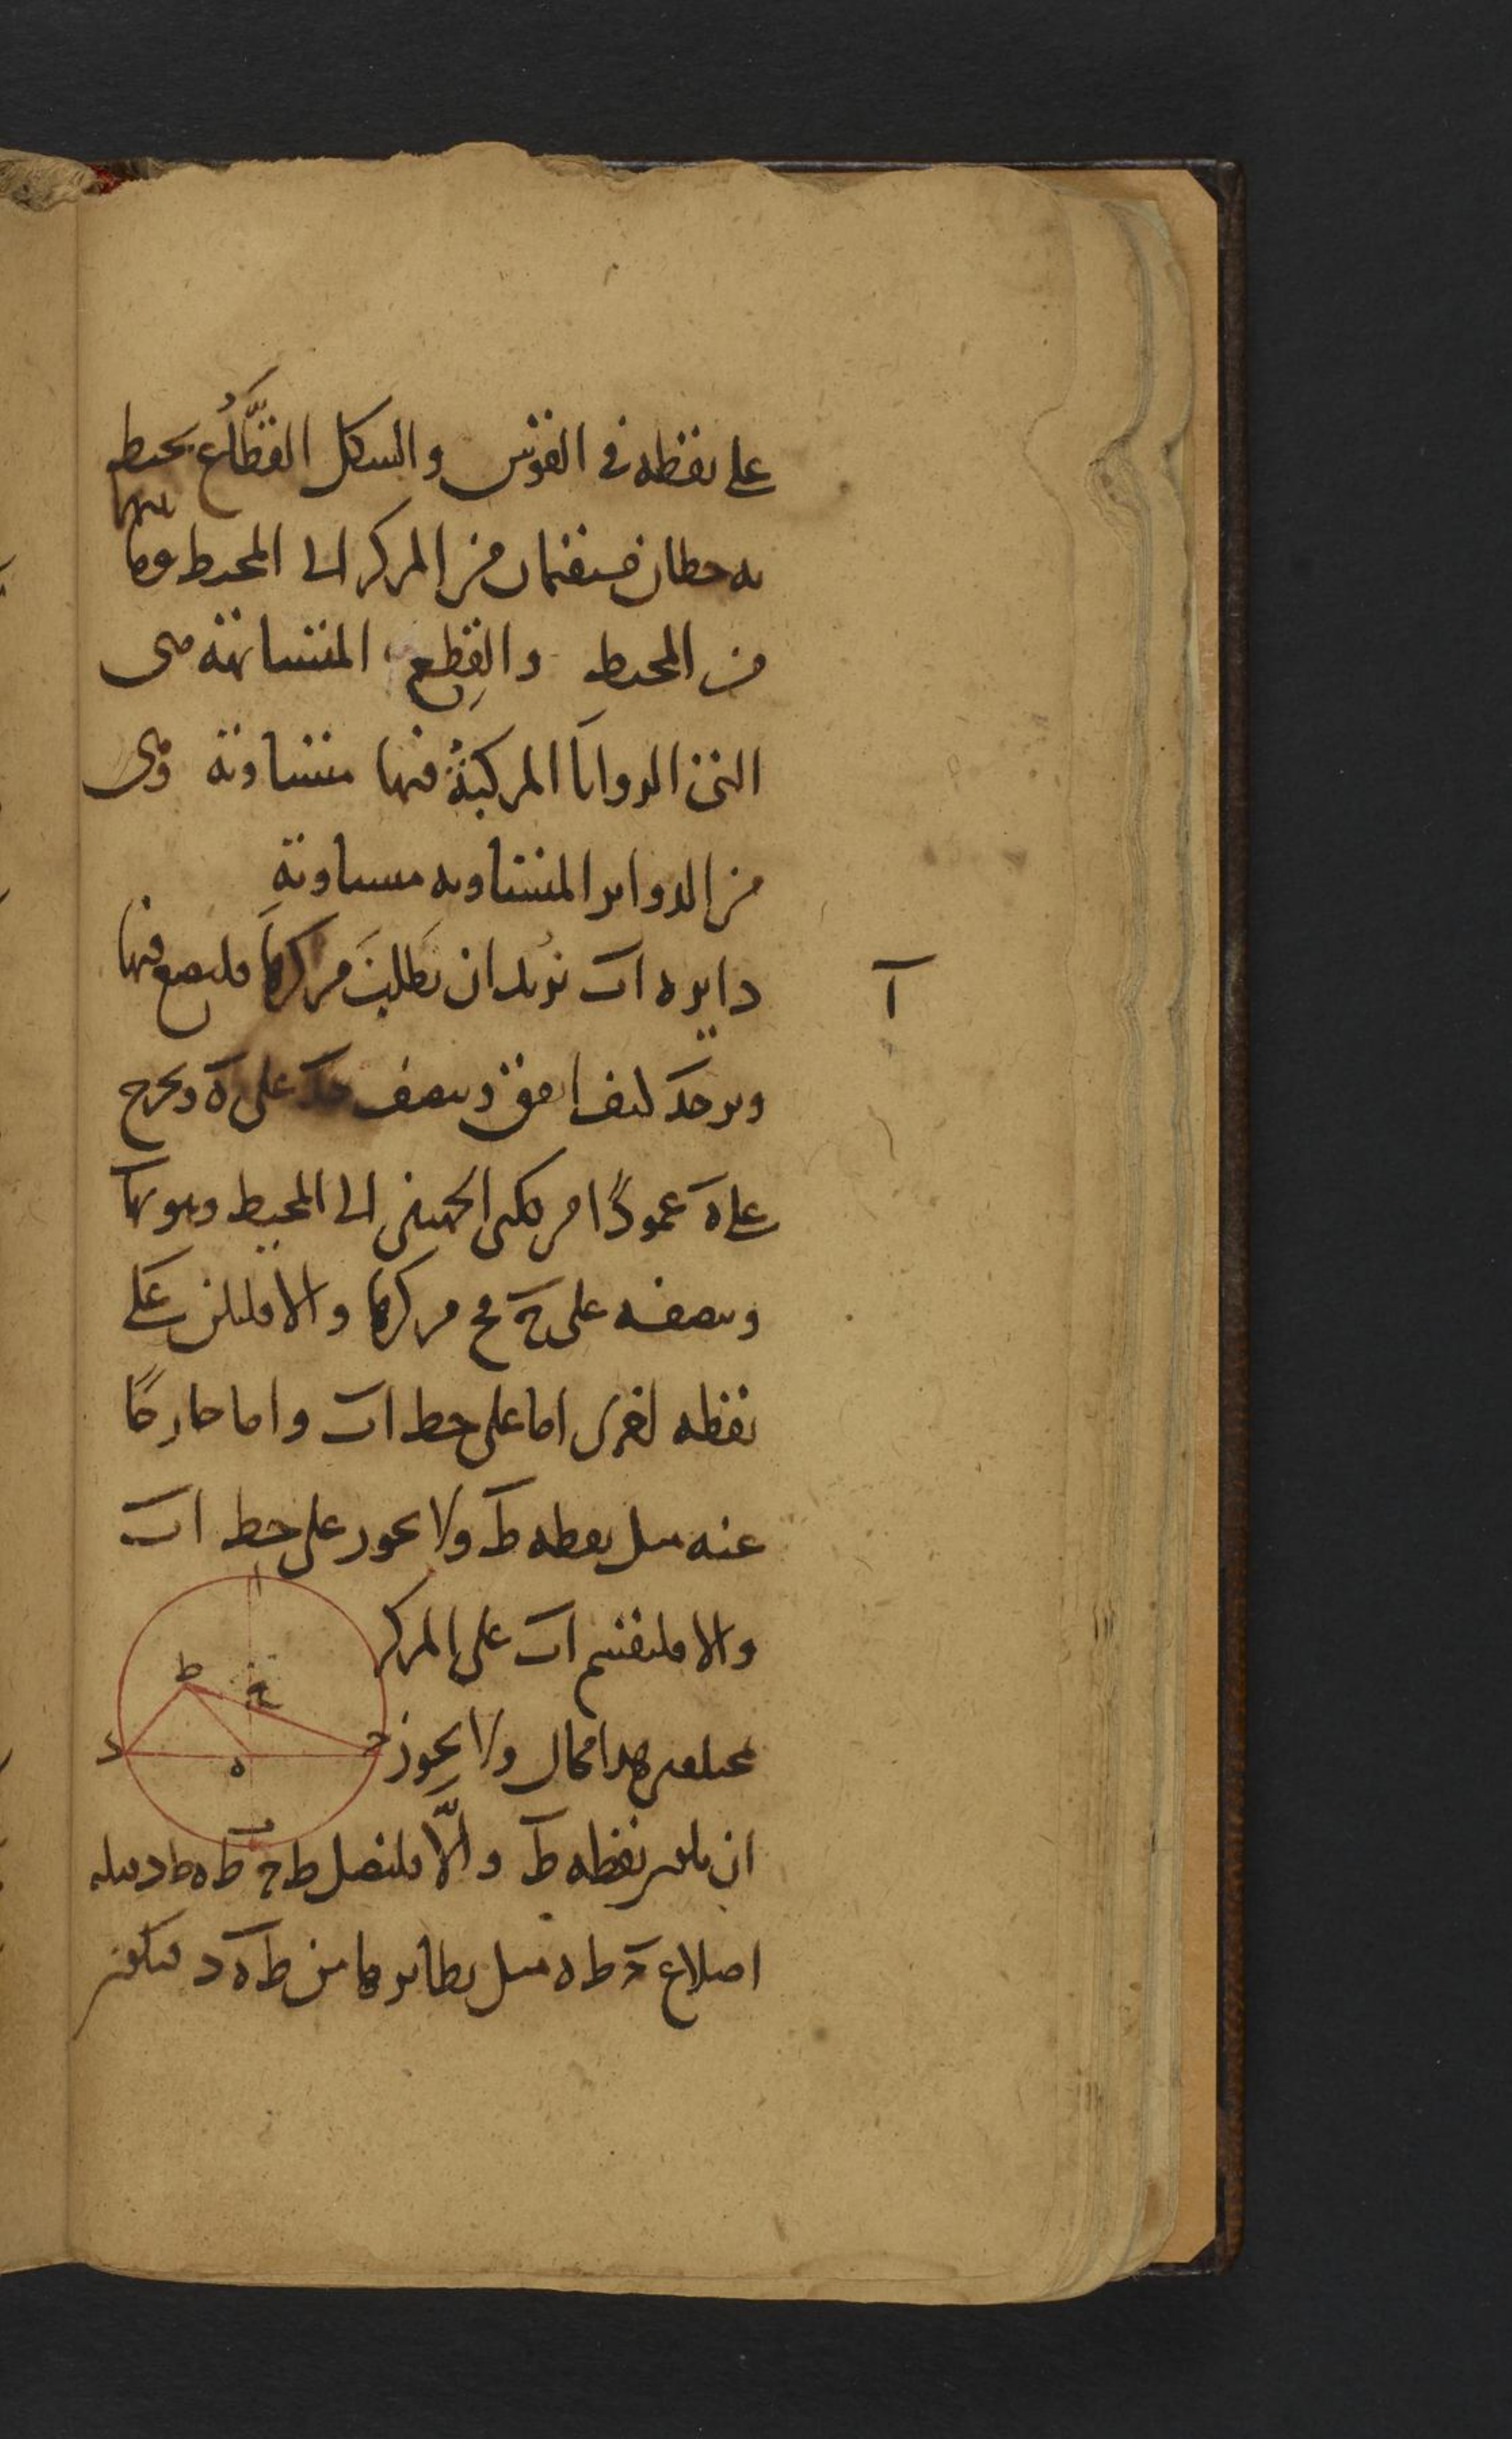 على نقطه في القوس والشكل القطّاع يحيط
به خطان مستقيمان من المركز الى المحيط وما بينهما
من المحيط والقِطع المتشابهة هى
التى الزوايا المركبة فيها متساوية وهى
من الدواير المتساويه متساوية
آ
دايره اب نريد ان نطلب مركزها فليضع فيها
وتر حد كيف اتفق وينصف حد على ه ويخرج
على ه عمودًا من كلى الجهتين الى المحيط وهو اب
وينصفه على ح فح مركزها والا فليكن على
نقطه اخرى اما على خط اب واما خارجًا
عنه مثل نقطه ط ولا يجوز على خط اب
والا فلينقسم اب على المركز
بمختلفين هذا محال ولا يجوز
ان يكون نقطه ط والّا فليتصل ط ح ط ه ط د فثلثه
اضلاع ح ط ه مثل نظايرها من ط ه د فيكون
ا
ط
ح
د
ح
ه
ب